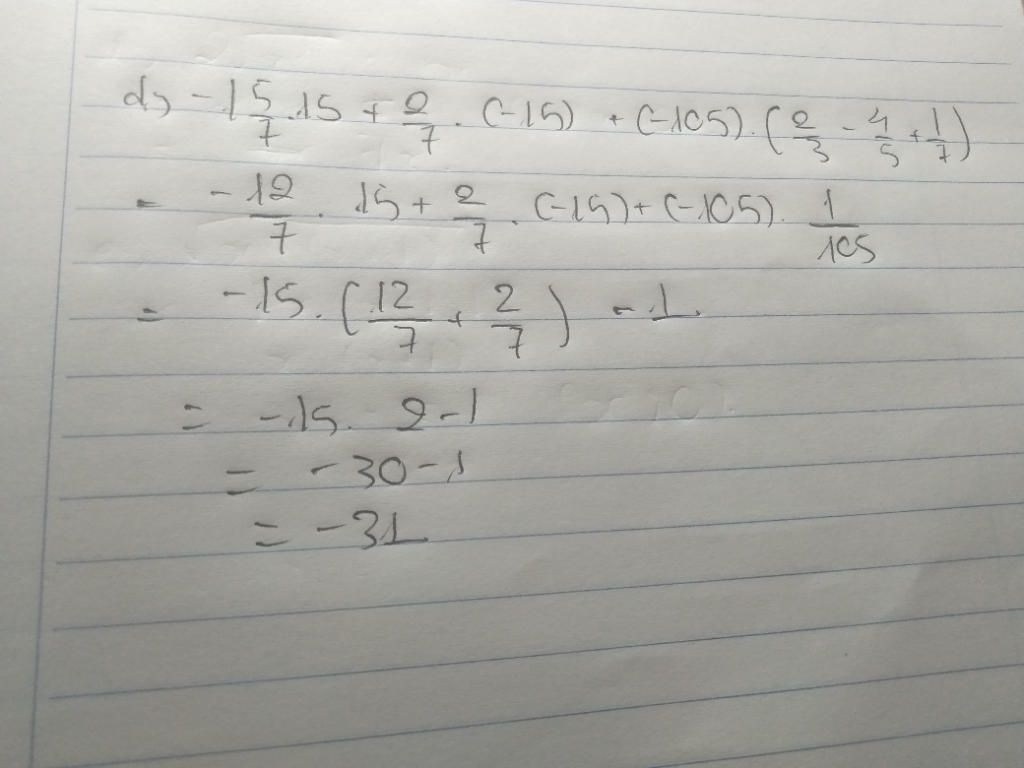 d, -1 5/7 . 15 + 2/7 . (-15) + (-105) . (2/3 - 4/5 + 1/7)
= -12/7 . 15 + 2/7 . (-15) + (-105) . 1/105
= -15 . (12/7 + 2/7) - 1
= -15 . 2 - 1
= -30 - 1
= -31